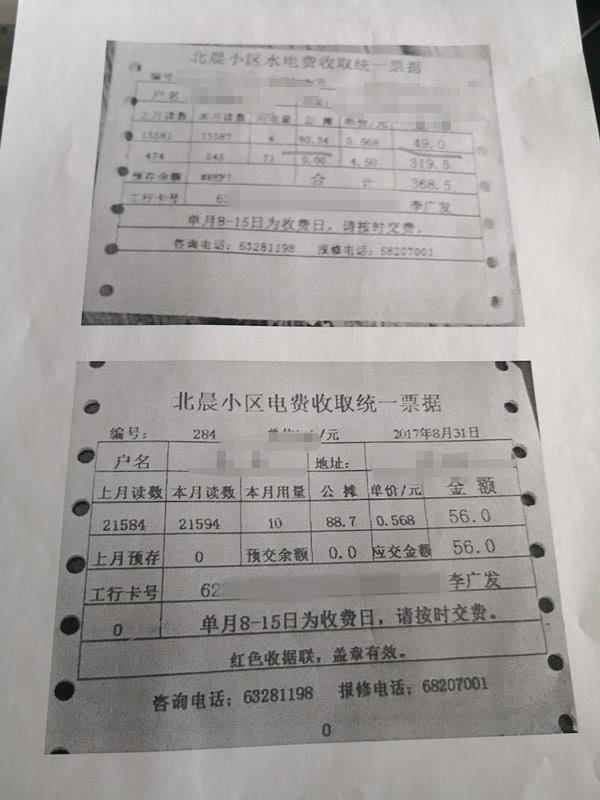 北晨小区水电费收取统一票据
编号
户名
上月读数 本月读数 公摊 单价/元
6 80.34 0.568 49.0
474 545 71 0.00 4.50 319.5
预存金额 合计 368.5
工行卡号 62 李广发
单月8-15日为收费日，请按时交费。
咨询电话：63281198 报修电话：68207001
北晨小区电费收取统一票据
编号： 284 /元 2017年8月31日
户名 地址：
上月读数 本月读数 本月用量 公摊 单价/元 金额
21584 21594 10 88.7 0.568 56.0
上月预存 0 预交余额 0.0 应交金额 56.0
工行卡号 62 李广发
0 单月8-15日为收费日，请按时交费。
红色收据联，盖章有效。
咨询电话：63281198 报修电话：68207001
0